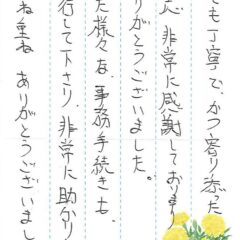 ても丁寧で、かつ寄り添った
応、非常に感謝しております
りがとうございました。
た様々な、事務手続きも、
行して下さり、非常に助かり
ね重ね ありがとうございまし